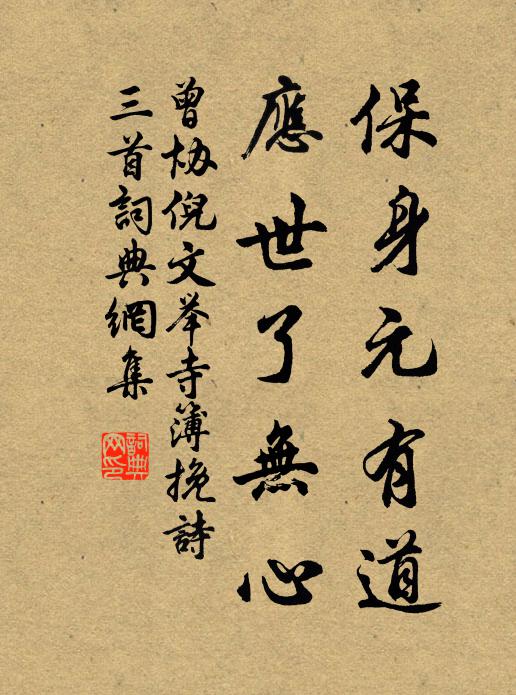 保身元有道
應世了無心
曾協倪文举寺簿挽詩
三首詞典網集
詞典网印